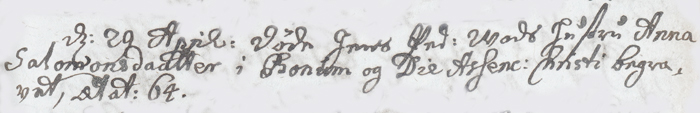 d: 29 April: døde Jens Ped: Wads Hustru Anna
Salomonsdaatter i Bonum og Die Ascenc: Christi begra,
vet, ætat: 64.